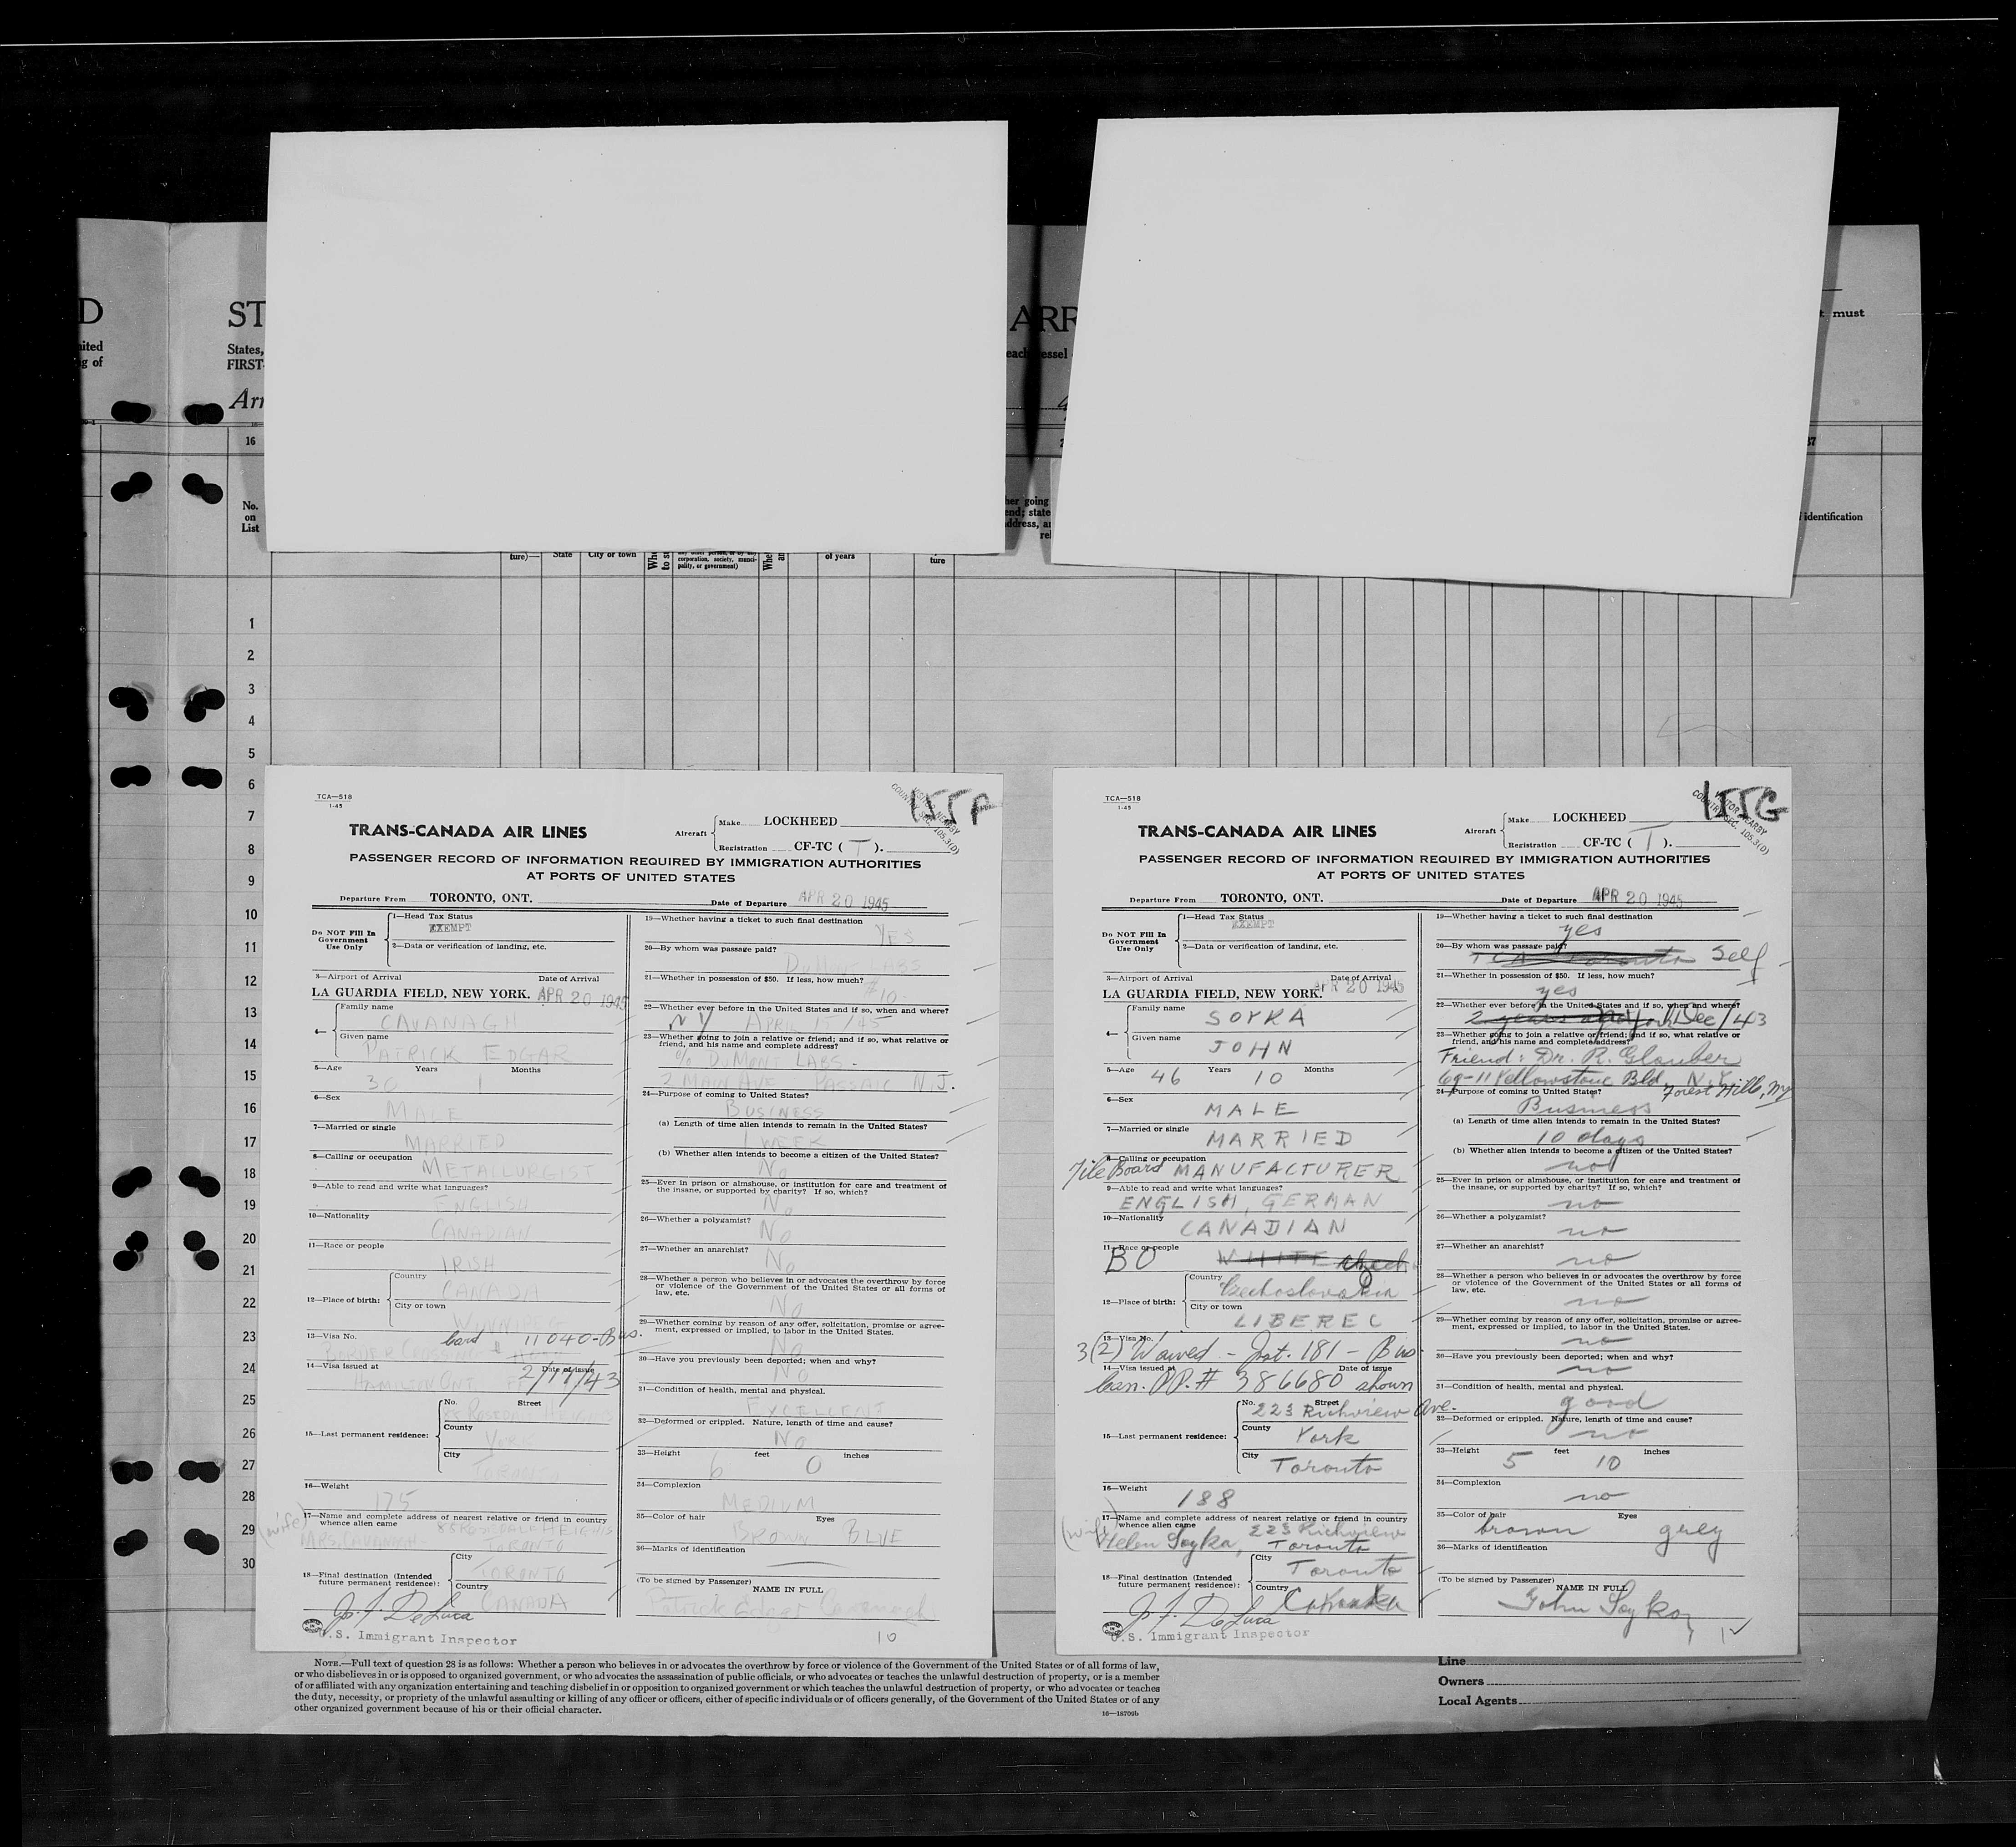 D
nited
ng of
ST
States,
FIRST-
Arr
ARR
each vessel
t must
16
37
No.
on
List
her going
end; state
address, an
rel
identification
ture)— State City or town
corporation, society, munici-
pality, or government)
of years
ture
1
2
3
4
5
6
7
8
9
10
11
12
13
14
15
16
17
18
19
20
21
22
23
24
25
26
27
28
29
30
TCA—518
1-45
155F
TRANS-CANADA AIR LINES
Aircraft Make LOCKHEED
Registration CF-TC ( T ).
PASSENGER RECORD OF INFORMATION REQUIRED BY IMMIGRATION AUTHORITIES
AT PORTS OF UNITED STATES
Departure From TORONTO, ONT. Date of Departure APR 20 1945
Do NOT Fill In
Government
Use Only
1—Head Tax Status
EXEMPT
2—Data or verification of landing, etc.
3—Airport of Arrival Date of Arrival
LA GUARDIA FIELD, NEW YORK. APR 20 1945
4— Family name
CAVANAGH
Given name
PATRICK EDGAR
5—Age 30 Years 1 Months
6—Sex
MALE
7—Married or single
MARRIED
8—Calling or occupation
METALLURGIST
9—Able to read and write what languages?
ENGLISH
10—Nationality
CANADIAN
11—Race or people
IRISH
12—Place of birth: Country
CANADA
City or town
WINNIPEG
13—Visa No. card 11040-Bus.
BORDER CROSSING
14—Visa issued at Date of issue
HAMILTON ONT. 2/17/43
15—Last permanent residence: No. Street
County
YORK
City
TORONTO
16—Weight
175
17—Name and complete address of nearest relative or friend in country
whence alien came 88 ROSEDALE HEIGHTS
(wife) MRS. CAVANAGH TORONTO
18—Final destination (Intended
future permanent residence):
City
TORONTO
Country
CANADA
J. F. DeLuca
U.S. Immigrant Inspector
19—Whether having a ticket to such final destination
YES
20—By whom was passage paid?
DuMont LABS
21—Whether in possession of $50. If less, how much?
$10-
22—Whether ever before in the United States and if so, when and where?
NY APRIL 15/45
23—Whether going to join a relative or friend; and if so, what relative or
friend, and his name and complete address?
% DuMont LABS-
2 MAIN AVE PASSAIC N.J.
24—Purpose of coming to United States?
BUSINESS
(a) Length of time alien intends to remain in the United States?
1 WEEK
(b) Whether alien intends to become a citizen of the United States?
No
25—Ever in prison or almshouse, or institution for care and treatment of
the insane, or supported by charity? If so, which?
No
26—Whether a polygamist?
No
27—Whether an anarchist?
No
28—Whether a person who believes in or advocates the overthrow by force
or violence of the Government of the United States or all forms of
law, etc.
No
29—Whether coming by reason of any offer, solicitation, promise or agree-
ment, expressed or implied, to labor in the United States.
No
30—Have you previously been deported; when and why?
No
31—Condition of health, mental and physical.
EXCELLENT
32—Deformed or crippled. Nature, length of time and cause?
No
33—Height 6 feet 0 inches
34—Complexion
MEDIUM
35—Color of hair Eyes
BROWN BLUE
36—Marks of identification
(To be signed by Passenger) NAME IN FULL
Patrick Edgar Cavanagh
10
TCA—518
1-45
155G
VISITOR NEARBY
COUNTRY SEC. 105.3(D)
TRANS-CANADA AIR LINES
Aircraft Make LOCKHEED
Registration CF-TC ( T ).
PASSENGER RECORD OF INFORMATION REQUIRED BY IMMIGRATION AUTHORITIES
AT PORTS OF UNITED STATES
Departure From TORONTO, ONT. Date of Departure APR 20 1945
Do NOT Fill In
Government
Use Only
1—Head Tax Status
EXEMPT
2—Data or verification of landing, etc.
3—Airport of Arrival Date of Arrival
LA GUARDIA FIELD, NEW YORK. APR 20 1945
4— Family name
SOYKA
Given name
JOHN
5—Age 46 Years 10 Months
6—Sex
MALE
7—Married or single
MARRIED
8—Calling or occupation
Tile Board MANUFACTURER
9—Able to read and write what languages?
ENGLISH, GERMAN
10—Nationality
CANADIAN
11—Race or people
BO WHITE Czech
12—Place of birth: Country
Czechoslovakia
City or town
LIBEREC
13—Visa No.
3(2) Waived - Jat. 181 - Bus.
14—Visa issued at Date of issue
Can. P.P. # 386680 shown
15—Last permanent residence: No. Street
223 Richview Ave.
County
York
City
Toronto
16—Weight
188
17—Name and complete address of nearest relative or friend in country
whence alien came 223 Richview
(wife) Helen Soyka, Toronto
18—Final destination (Intended
future permanent residence):
City
Toronto
Country
Canada
J. F. DeLuca
U.S. Immigrant Inspector
19—Whether having a ticket to such final destination
yes
20—By whom was passage paid?
Self
21—Whether in possession of $50. If less, how much?
yes
22—Whether ever before in the United States and if so, when and where?
2 years ago Dec/43
23—Whether going to join a relative or friend; and if so, what relative or
friend, and his name and complete address?
Friend: Dr. R. Glauber
69-11 Yellowstone Bld. N.Y.
Forest Hills, NY
24—Purpose of coming to United States?
Business
(a) Length of time alien intends to remain in the United States?
10 days
(b) Whether alien intends to become a citizen of the United States?
no
25—Ever in prison or almshouse, or institution for care and treatment of
the insane, or supported by charity? If so, which?
no
26—Whether a polygamist?
no
27—Whether an anarchist?
no
28—Whether a person who believes in or advocates the overthrow by force
or violence of the Government of the United States or all forms of
law, etc.
no
29—Whether coming by reason of any offer, solicitation, promise or agree-
ment, expressed or implied, to labor in the United States.
no
30—Have you previously been deported; when and why?
no
31—Condition of health, mental and physical.
good
32—Deformed or crippled. Nature, length of time and cause?
no
33—Height 5 feet 10 inches
34—Complexion
no
35—Color of hair Eyes
brown grey
36—Marks of identification
(To be signed by Passenger) NAME IN FULL
John Soyka
NOTE.—Full text of question 28 is as follows: Whether a person who believes in or advocates the overthrow by force or violence of the Government of the United States or of all forms of law,
or who disbelieves in or is opposed to organized government, or who advocates the assassination of public officials, or who advocates or teaches the unlawful destruction of property, or is a member
of or affiliated with any organization entertaining and teaching disbelief in or opposition to organized government or which teaches the unlawful destruction of property, or who advocates or teaches
the duty, necessity, or propriety of the unlawful assaulting or killing of any officer or officers, either of specific individuals or of officers generally, of the Government of the United States or of any
other organized government because of his or their official character.
16—18709b
Line
Owners
Local Agents